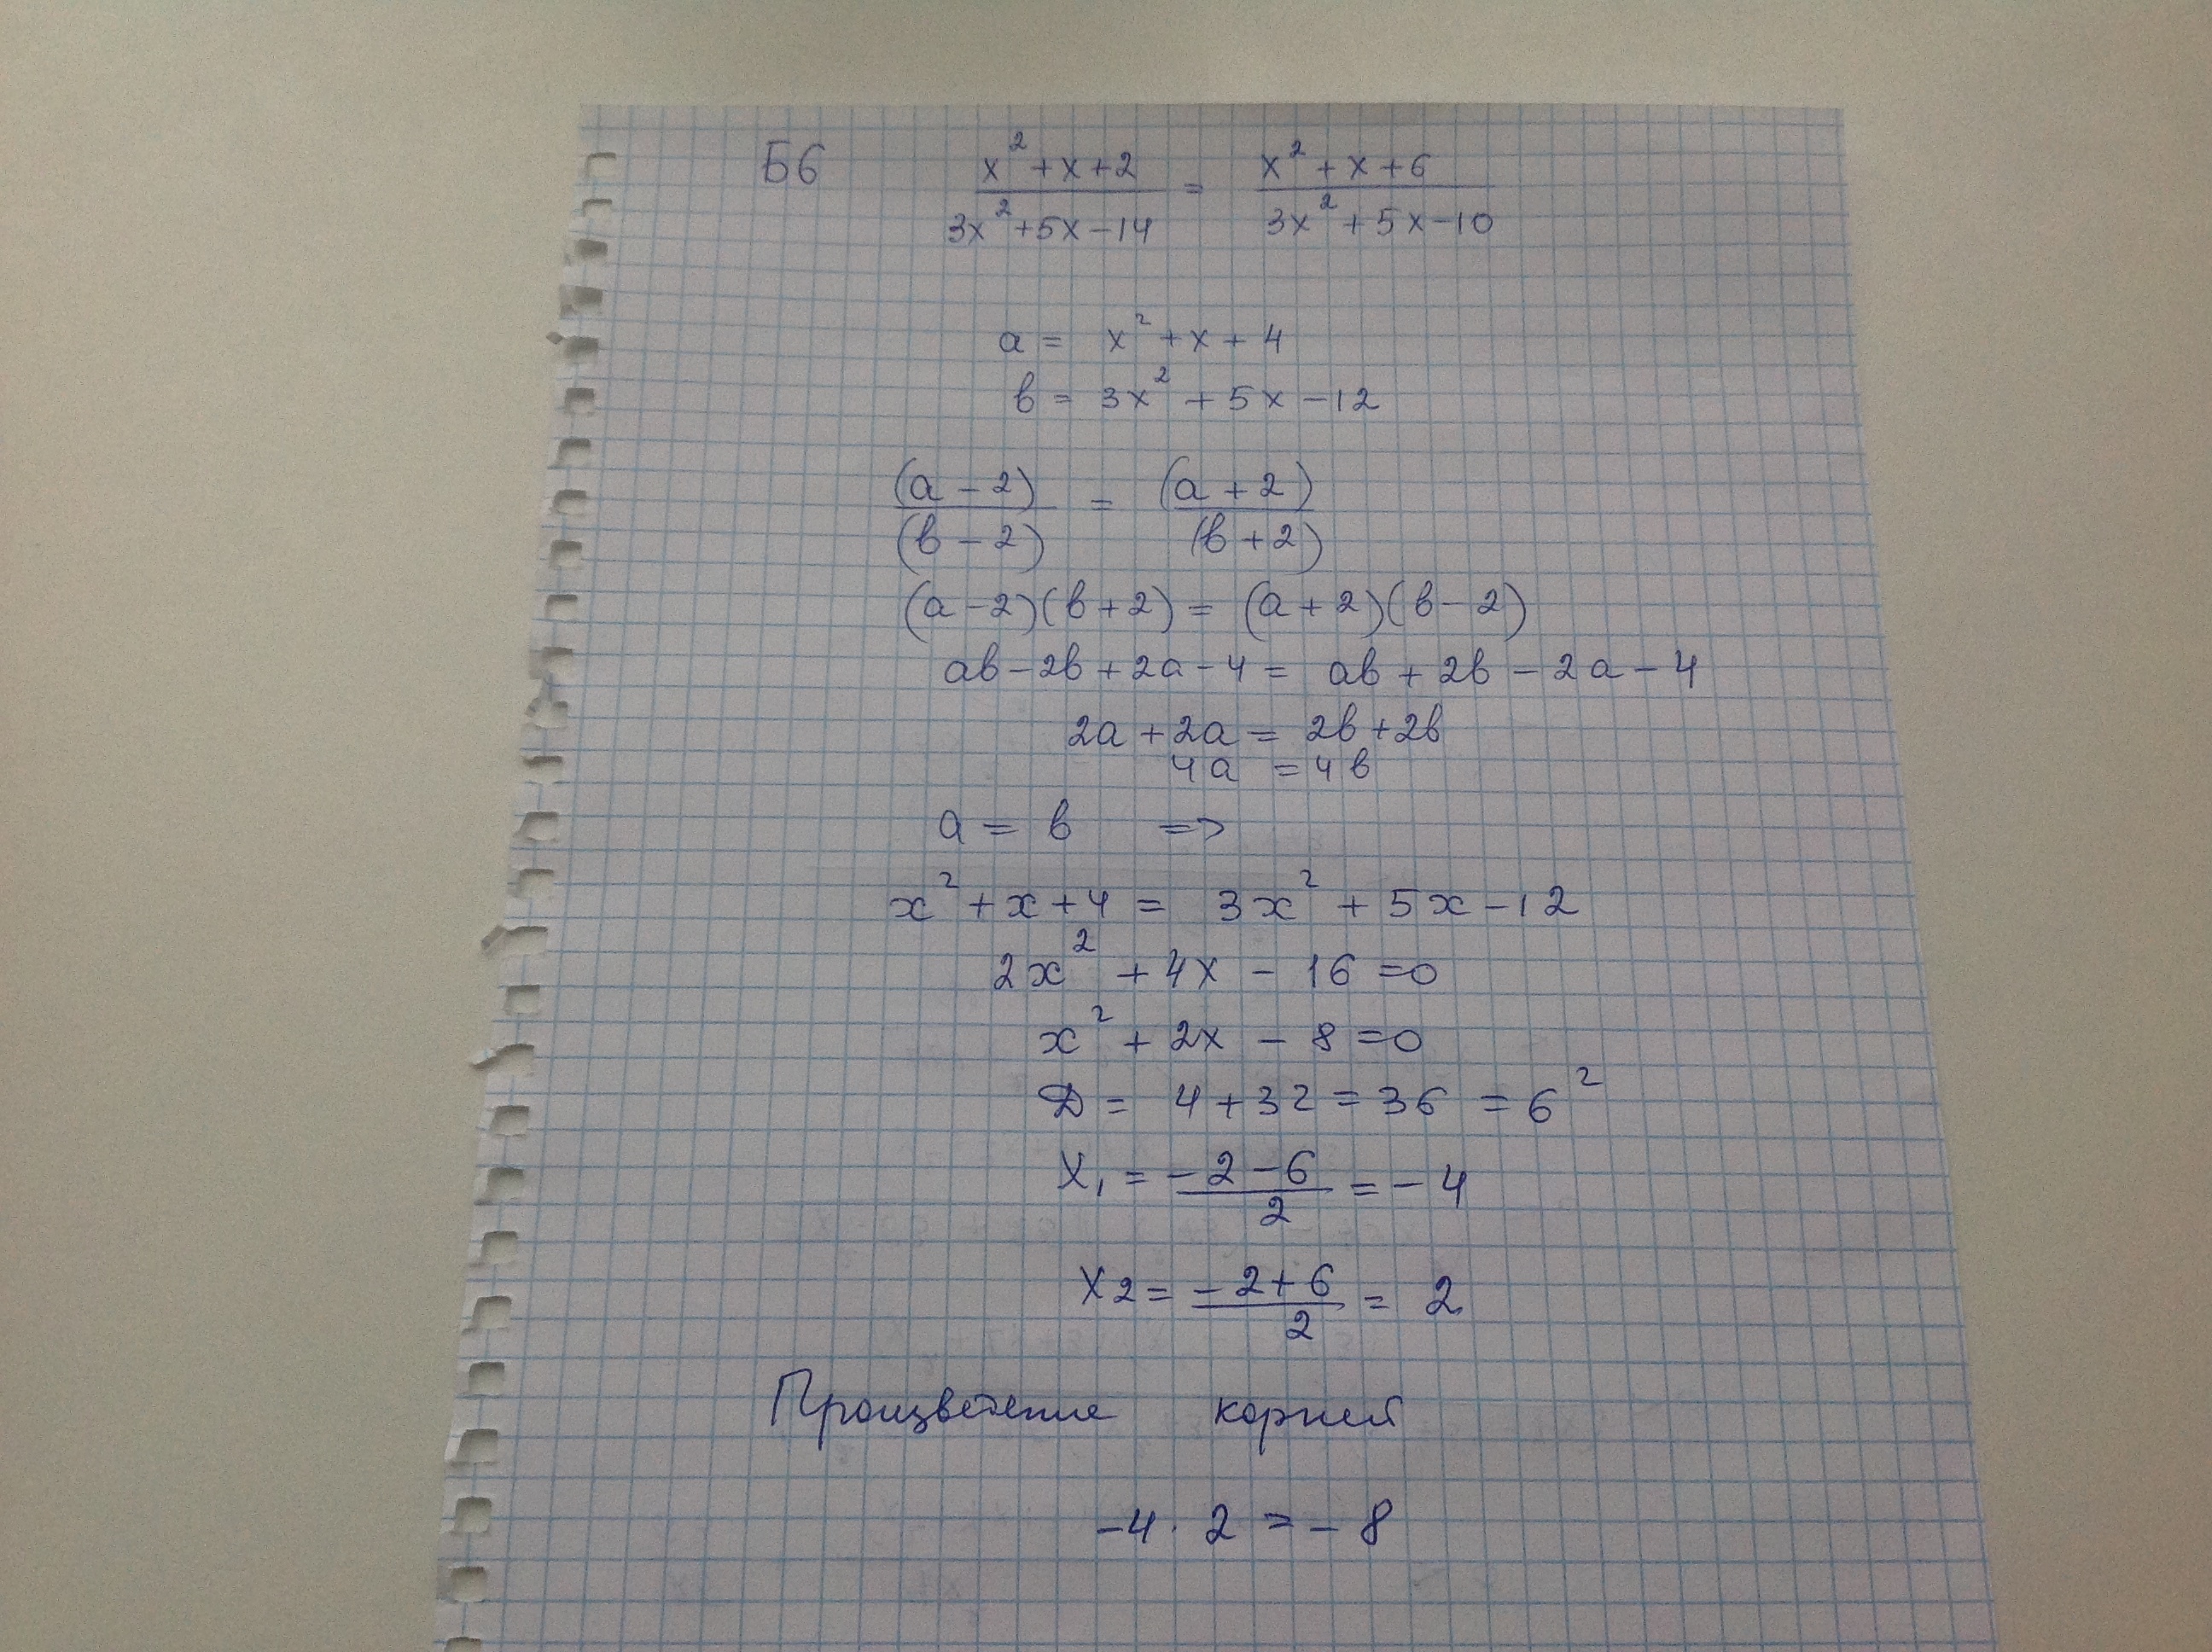 Б6 x²+x+2 / 3x²+5x-14 = x²+x+6 / 3x²+5x-10
a = x²+x+4
b = 3x²+5x-12
(a-2) / (b-2) = (a+2) / (b+2)
(a-2)(b+2) = (a+2)(b-2)
ab-2b+2a-4 = ab+2b-2a-4
2a+2a = 2b+2b
4a = 4b
a = b =>
x²+x+4 = 3x²+5x-12
2x²+4x-16=0
x²+2x-8=0
D = 4+32=36 = 6²
X₁ = -2-6 / 2 = -4
X2 = -2+6 / 2 = 2
Произведение корней
-4 · 2 = -8